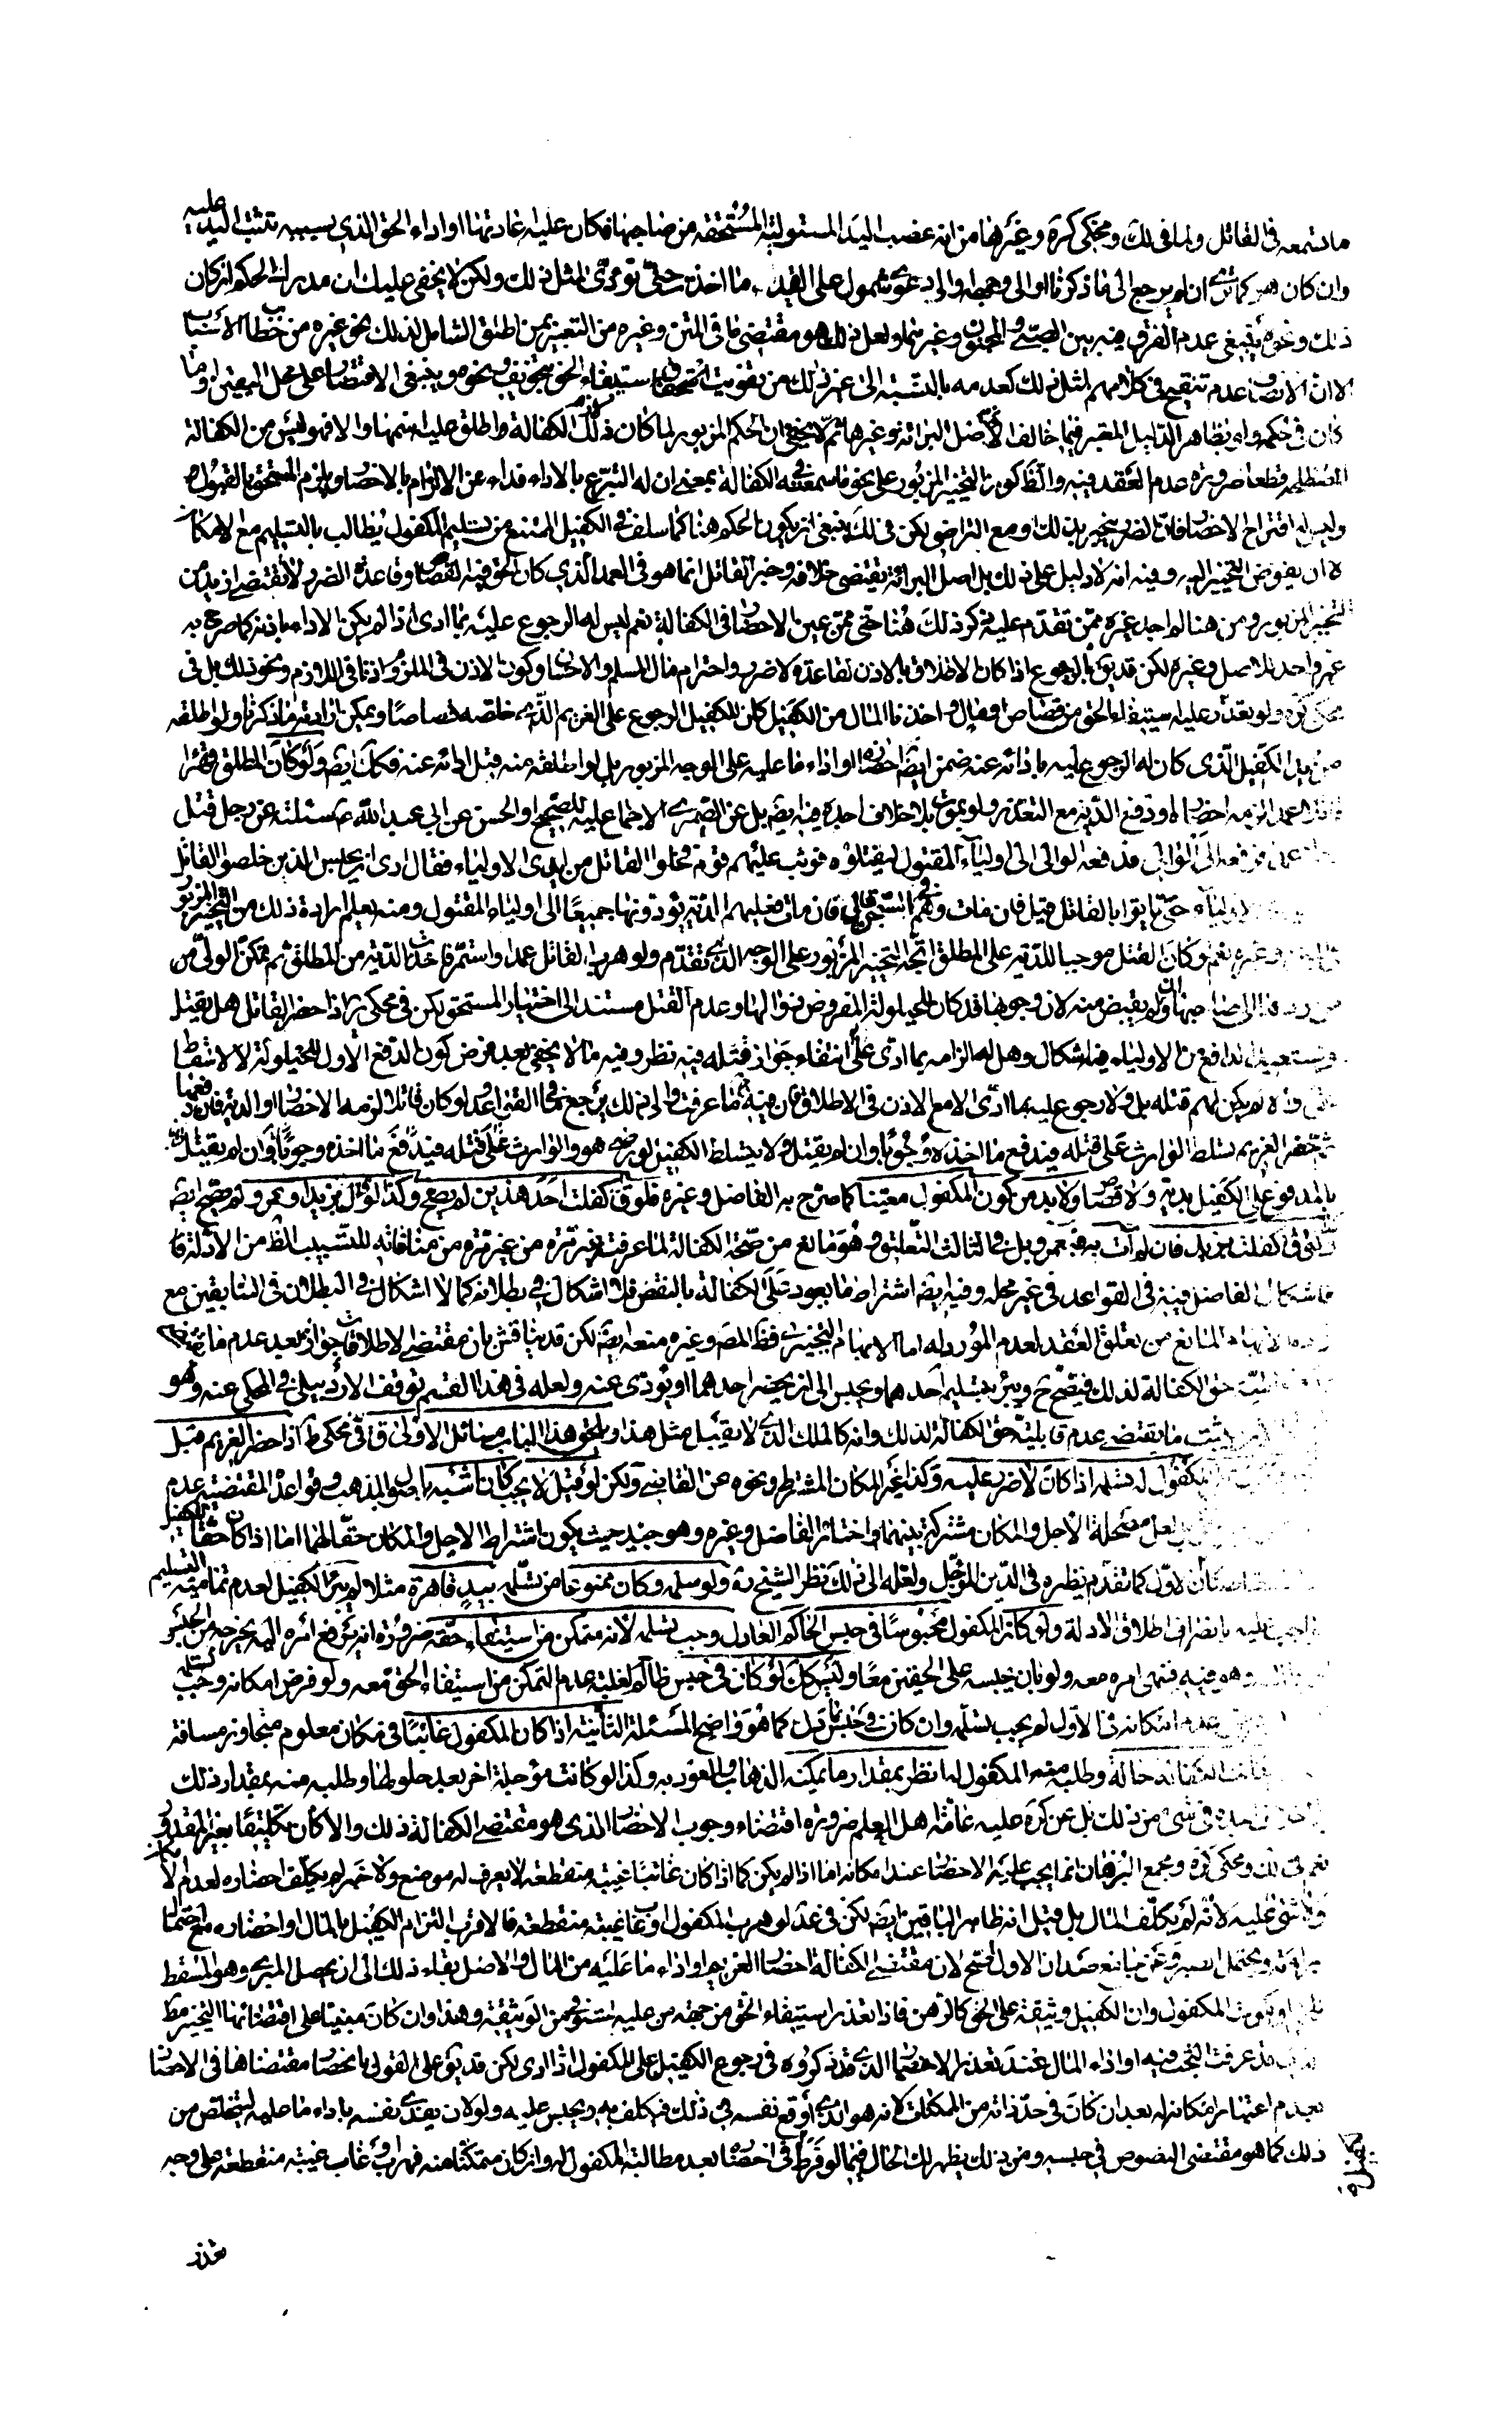 ما ستسمعه فى القاتل ولما فى لك ومحكى كره وغيرها من انه غصب اليد المستولية المستحقه من صاحبها فكان عليه اعادتها او اداء الحق الذى بسببه تثبت اليد عليه
وان كان هو كما ترى ان لم يرجع الى ما ذكرنا او الى وجهه او الى دعوى شمول على اليد ما اخذت حتى تؤدى لمثل ذلك ولكن لا يخفى عليك ان مدرك الحكم ان كان
ذلك ونحوه ينبغى عدم الفرق فيه بين الصبى والمجنون وغيرهما ولعل ذلك هو مقتضى ما فى المتن وغيره من التعبير بمن اطلق الشامل لذلك نحو غيره من خطاب الاسباب
الا ان الانصاف عدم تنقيح فى كلامهم لمثل ذلك كعدمه بالنسبة الى غير ذلك من تفويت استحقاق استيفاء الحق بتخويف ونحوه وينبغى الاقتصار على محل اليقين او ما
كان فى حكمه ولو بظاهر الدليل المعتبر فيما خالف الاصل البرائة وغيرها ثم لا يخفى ان الحكم المزبور لما كان ذلك الكفالة واطلق عليه اسمها والا فهو ليس من الكفالة
المصطلحه قطعا ضرورة عدم العقد فيه والظ كون التخيير المزبور على نحو ما سمعته فى الكفالة بمعنى ان له التبرع بالاداء فداء عن الالزام بالاحضار ويلزم المستحق بالقبول
وليس له اقتراح الاحضار فان الضرر يتخير بذلك ومع التراضى لكن فى لك ينبغى ان يكون الحكم هنا كما سلف فى الكفيل الممتنع من تسليم المكفول يطالب بالتسليم مع الامكان
لا ان يفوض التخيير اليه وفيه انه لا دليل على ذلك بل اصل البرائة يقتضى خلافه وخبر القاتل انما هو فى العمد الذى كان الحق فيه القصاص وقاعدة الضرر لا تقتضى ازيد من
التخيير المزبور ومن هنا لم اجد غيره ممن تقدم عليه ذكر ذلك هنا حتى ممن عين الاحضار فى الكفالة نعم ليس له الرجوع عليه بما ادى اذا لم يكن الاداء باذنه كما صرح به
غير واحد للاصل وغيره لكن قد يق بالرجوع اذا كان الاطلاق بالاذن لقاعدة لا ضرر واحترام مال المسلم والاحسان وكون الاذن فى الملزوم اذنا فى اللازم ونحو ذلك بل فى
محكى كره ولو تعذر عليه استيفاء الحق من قصاص او مال واخذنا المال من الكفيل كان للكفيل الرجوع على الغريم الذى خلصه قصاصا ويمكن ان يريد ما ذكرنا ولو اطلقه
من يد الكفيل الذى كان له الرجوع عليه باذائه عنه ضمن ايض احضاره او اداء ما عليه على الوجه المزبور بل لو اطلقه منه قبل ادائه عنه فكك ايض ولو كان المطلق قهرا
قاتلا عمدا لزمه احضاره او دفع الدية مع التعذر ولو بموته بلا خلاف اجده فيه ايض بل عن الصيمرى الاجماع عليه للصحيح او الحسن عن ابى عبد الله ع سئلته عن رجل قتل
رجلا عمدا فرفع الى الوالى فدفعه الوالى الى اولياء المقتول ليقتلوه فوثب عليهم قوم فخلوا القاتل من ايدى الاولياء فقال ارى ان يحبس الذين خلصوا القاتل
من ايدى الاولياء حتى ياتوا بالقاتل قيل فان مات وهم فى السجن قال فان مات فعليهم الدية يؤدونها جميعا الى اولياء المقتول ومنه يعلم ارادة ذلك من التخيير المزبور
وغيره نعم لو كان القتل موجبا للدية على المطلق اتجه التخيير المزبور على الوجه الذى تقدم ولو هرب القاتل عمدا واستمر فاخذت الدية من المطلق ثم تمكن الولى من
الى صاحبها وان لم يقتص منه لان وجوبها قد كان للحيلولة المفروض زوالها وعدم القتل مستند الى اختيار المستحق لكن فى محكى كره اذا حضر القاتل هل يقتل
ويستعيد الدافع من الاولياء فيه اشكال وهل له الزامه بما ادى على انتفاء جواز قتله فيه نظر وفيه ما لا يخفى بعد فرض كون الدفع الاول للحيلولة لا لاسقاط
والا لم يكن لهم قتله بل ولا رجوع عليه بما ادى الا مع الاذن فى الاطلاق فان فيه ما عرفت والى ذلك يرجع ما فى القواعد لو كان قاتلا لزمه الاحضار او الدية فان دفعها
ثم حضر الغريم تسلط الوارث على قتله فيدفع ما اخذه وجوبا وان لم يقتل ولا يتسلط الكفيل لو رضى هو والوارث على قتله فيدفع ما اخذه وجوبا وان لم يقتل
بالمدفوع على الكفيل بدية ولا قصاص ولا بد من كون المكفول معينا كما صرح به الفاضل وغيره فلو ق كفلت احد هذين لم يصح وكذا لو قال بزيد او عمرو ولم يصح ايض
لو ق كفلت بزيد فان لم آت به فبعمرو بل فى الثالث التعليق وهو مانع من صحة الكفالة لما عرفته غير مرة من غير مرة من منافاته للتسبيب الظ من الادلة فا
فاشكال الفاضل فيه فى القواعد فى غير محله وفيه ايض اشتراط ما يعود على الكفالة بالنقض فلا اشكال فى بطلانه كما لا اشكال فى البطلان فى السابقين مع
الابهام المانع من تعلق العقد لعدم المورد له اما الابهام التخييرى فظ المص وغيره منعه ايض لكن قد يناقش بان مقتضى الاطلاقات جوازه بعد عدم ما
حق الكفالة لذلك فيتضح ح ويبرء بتسليم احدهما ويحبس الى ان يحضر احدهما او يؤدى عنه ولعله فى هذا القسم توقف الاردبيلى فى المحكى عنه وهو
يثبت ما يقتضى عدم قابلية حق الكفالة لذلك وانه كالملك الذى لا يقبل مثل هذا ويلحق هذا الباب مسائل الاولى ق فى محكى ط اذا حضر الغريم قبل
المكفول له تسلمه اذا كان لا ضرر عليه وكذا غير المكان المشترط ونحوه عن القاضى ولكن لو قيل لا يجب كان اشبه باصول المذهب وقواعده المقتضية عدم
لعل مصلحة الاجل والمكان مشتركة بينهما واختاره الفاضل وغيره وهو جيد حيث يكون اشتراط الاجل والمكان حقا لهما اما اذا كان حقا للكفيل
لاول كما تقدم نظيره فى الدين المؤجل ولعله الى ذلك نظر الشيخ ره ولو سلمه وكان ممنوعا من تسلمه بيد قاهرة مثلا لم يبرء الكفيل لعدم تمامية التسليم
الواجب عليه بانصراف اطلاق الادلة ولو كان المكفول محبوسا فى حبس الحاكم العادل وجب تسلمه لانه متمكن من استيفاء حقه ضرورة انه يرفع امره اليه يخرجه من الحبس
وهو فيه فينهى امره معه ولو بان يحبسه على الحقين معا وليس كك لو كان فى حبس ظالم لغلبة عدم التمكن من استيفاء الحق معه ولو فرض امكانه وجب تسلمه
عدم امكانه فى الاول لم يجب تسلمه وان كان فى حبس عادل كما هو واضح المسئلة الثانية اذا كان المكفول غائبا فى مكان معلوم متجاوز مسافة
كانت الكفالة حالة وطلب منه المكفول له انظر بمقدار ما يمكنه الذهاب والعود به وكذا لو كانت مؤجلة اخر بعد حلولها وطلبه منه بمقدار ذلك
اجده فى شئ من ذلك بل عن كره عليه عامة اهل العلم ضرورة اقتضاء وجوب الاحضار الذى هو مقتضى الكفالة ذلك والا كان تكليفا بغير المقدور
نعم فى لك ومحكى كره ومجمع البرهان انما يجب عليه الاحضار عند امكانه اما اذا لم يكن كما اذا كان غائبا غيبة منقطعة لا يعرف له موضع ولا خبر لم يكلف احضاره لعدم الامكان
ولا شئ عليه لانه لم يكلف المال بل قيل انه ظاهر الباقين ايض لكن فى عد لو هرب المكفول او غاب غيبة منقطعة فالاقرب التزام الكفيل بالمال او احضاره مع احتمال
برائته ويحتمل الصبر وعن جامع صد ان الاول اصح لان مقتضى الكفالة احضار الغريم او اداء ما عليه من المال والاصل بقاء ذلك الى ان يحصل المبرء وهو المسقط
او يموت المكفول وان الكفيل وثيقة على الحق كالرهن فاذا تعذر استيفاء الحق من جهة من عليه استوفى من الوثيقة وهذا وان كان مبنيا على اقتضائها التخيير مط
قد عرفت البحث فيه او اداء المال عند تعذر الاحضار الذى قد ذكروه فى رجوع الكفيل على المكفول اذا ادى لكن قد يق على القول بانحصار مقتضاها فى الاحضار
بعدم اعتبار امكانه له بعد ان كان فى حد ذاته من الممكنات لانه هو الذى اوقع نفسه فى ذلك فيكلف به ويحبس عليه ولو لان يفدى نفسه باداء ما عليه ليتخلص من
ذلك كما هو مقتضى النصوص فى حبسه ومن ذلك يظهر لك الحال فيما لو فرط فى احضاره بعد مطالبة المكفول له وان كان متمكنا منه فهرب او غاب غيبة منقطعة على وجه